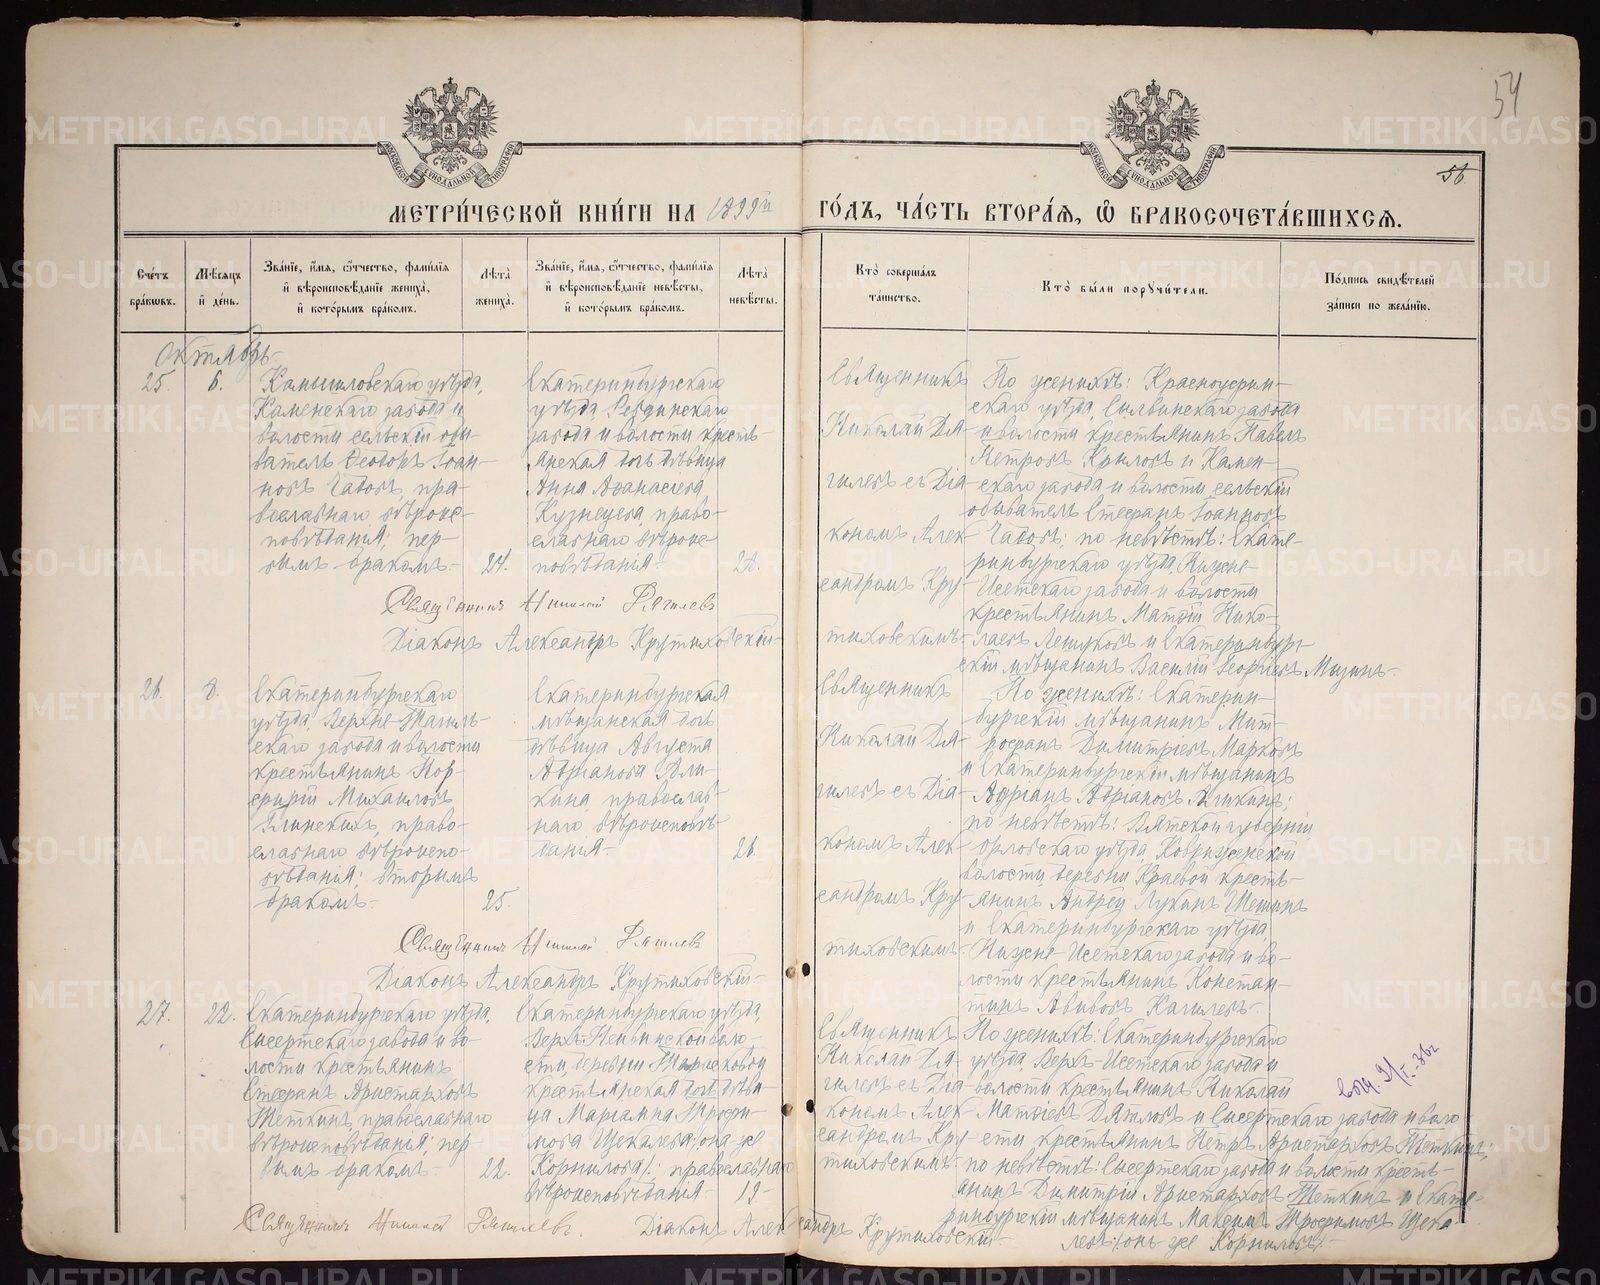 54
56
МЕТРИ́ЧЕСКОЙ КНИ́ГИ НА 1899й ГО́ДЪ, ЧА́СТЬ ВТОРА́Я, Ѡ БРАКОСОЧЕТА́ВШИХСЯ.
Сче́тъ бра́ковъ.
Мѣ́сяцъ и҆ де́нь.
Зва́нїе, и҆́мя, ѻ҆́тчество, фами́лїя и҆ вѣроисповѣ́данїе жениха̀, и҆ кото́рымъ бра́комъ.
Лѣ́та жениха̀.
Зва́нїе, и҆́мя, ѻ҆́тчество, фами́лїя и҆ вѣроисповѣ́данїе невѣ́сты, и҆ кото́рымъ бра́комъ.
Лѣ́та невѣ́сты.
Кто̀ соверша́лъ та́инство.
Кто̀ бы́ли порꙋчи́тели.
По́дпись свидѣ́телей за́писи по жела́нїю.
Октябрь
25.
6.
Камышловскаго уѣзда,
Каменскаго завода и
волости сельскій обы-
ватель Ѳеодоръ Іоан-
новъ Чадовъ, пра-
вославнаго вѣроис-
повѣданія; пер-
вымъ бракомъ.
24.
Екатеринбургскаго
уѣзда Ревдинскаго
завода и волости кресть-
янская дочь дѣвица
Анна Аѳанасіева
Кузнецова, право-
славнаго вѣроис-
повѣданія
28.
Священникъ
Николай Дя-
гилевъ съ Діа-
кономъ Алек-
сандромъ Кру-
тиховскимъ
По женихѣ: Красноуфим-
скаго уѣзда, Сылвинскаго завода
и волости крестьянинъ Павелъ
Петровъ Крыловъ и Камен-
скаго завода и волости сельскій
обыватель Стефанъ Іоанновъ
Чадовъ; по невѣстѣ: Екате-
ринбургскаго уѣзда, Нижне-
Исетскаго завода и волости
крестьянинъ Матѳій Нико-
лаевъ и Екатеринбург-
скій мѣщанинъ Василій Георгіевъ
Священникъ Николай Дягилевъ
Діаконъ Александръ Крутиховскій
26.
8.
Екатеринбургскаго
уѣзда, Верхне-Тагиль-
скаго завода и волости
крестьянинъ Пор-
фирій Михаиловъ
Глинскихъ, право-
славнаго вѣроиспо-
вѣданія; вторымъ
бракомъ
25.
Екатеринбургская
мѣщанская дочь
дѣвица Августа
Адріанова Али-
кина православ-
наго вѣроисповѣ-
данія
26.
Священникъ
Николай Дя-
гилевъ съ Діа-
кономъ Алек-
сандромъ Кру-
тиховскимъ
По женихѣ: Екатерин-
бургскій мѣщанинъ Мит-
рофанъ Димитріевъ Марковъ
и Екатеринбургскій мѣщанинъ
Адріанъ Адріановъ Аликинъ;
по невѣстѣ: Вятской губерніи
Орловскаго уѣзда,
волости, деревни Краевой кресть-
янинъ Андрей Лукинъ
и Екатеринбургскаго уѣзда
Нижне-Исетскаго завода и во-
лости крестьянинъ Констан-
тинъ
Священникъ Николай Дягилевъ
Діаконъ Александръ Крутиховскій
27.
22.
Екатеринбургскаго уѣзда,
Сысертскаго завода и во-
лости крестьянинъ
Стефанъ Аристарховъ
Шеткинъ, православнаго
вѣроисповѣданія; пер-
вымъ бракомъ
22.
Екатеринбургскаго уѣзда,
Верх-Нейвинской воло-
сти, деревни
крестьянская дочь дѣви-
ца Маріамна Трофи-
мова Щекалева (она же
Корнилова); православнаго
вѣроисповѣданія
19
Священникъ
Николай Дя-
гилевъ съ Діа-
кономъ Алек-
сандромъ Кру-
тиховскимъ
По женихѣ: Екатеринбургскаго
уѣзда, Верх-Исетскаго завода и
волости крестьянинъ Николай
Матѳіевъ Дятловъ и Сысертскаго завода и воло-
сти крестьянинъ Петръ Аристарховъ Шеткинъ;
по невѣстѣ: Сысертскаго завода и волости кресть-
янинъ Димитрій Аристарховъ Шеткинъ и Екате-
ринбургскій мѣщанинъ Максимъ Трофимовъ Щека-
левъ (онъ же Корниловъ)
Священникъ Николай Дягилевъ. Діаконъ Александръ Крутиховскій
METRIKI.GASO-URAL.RU